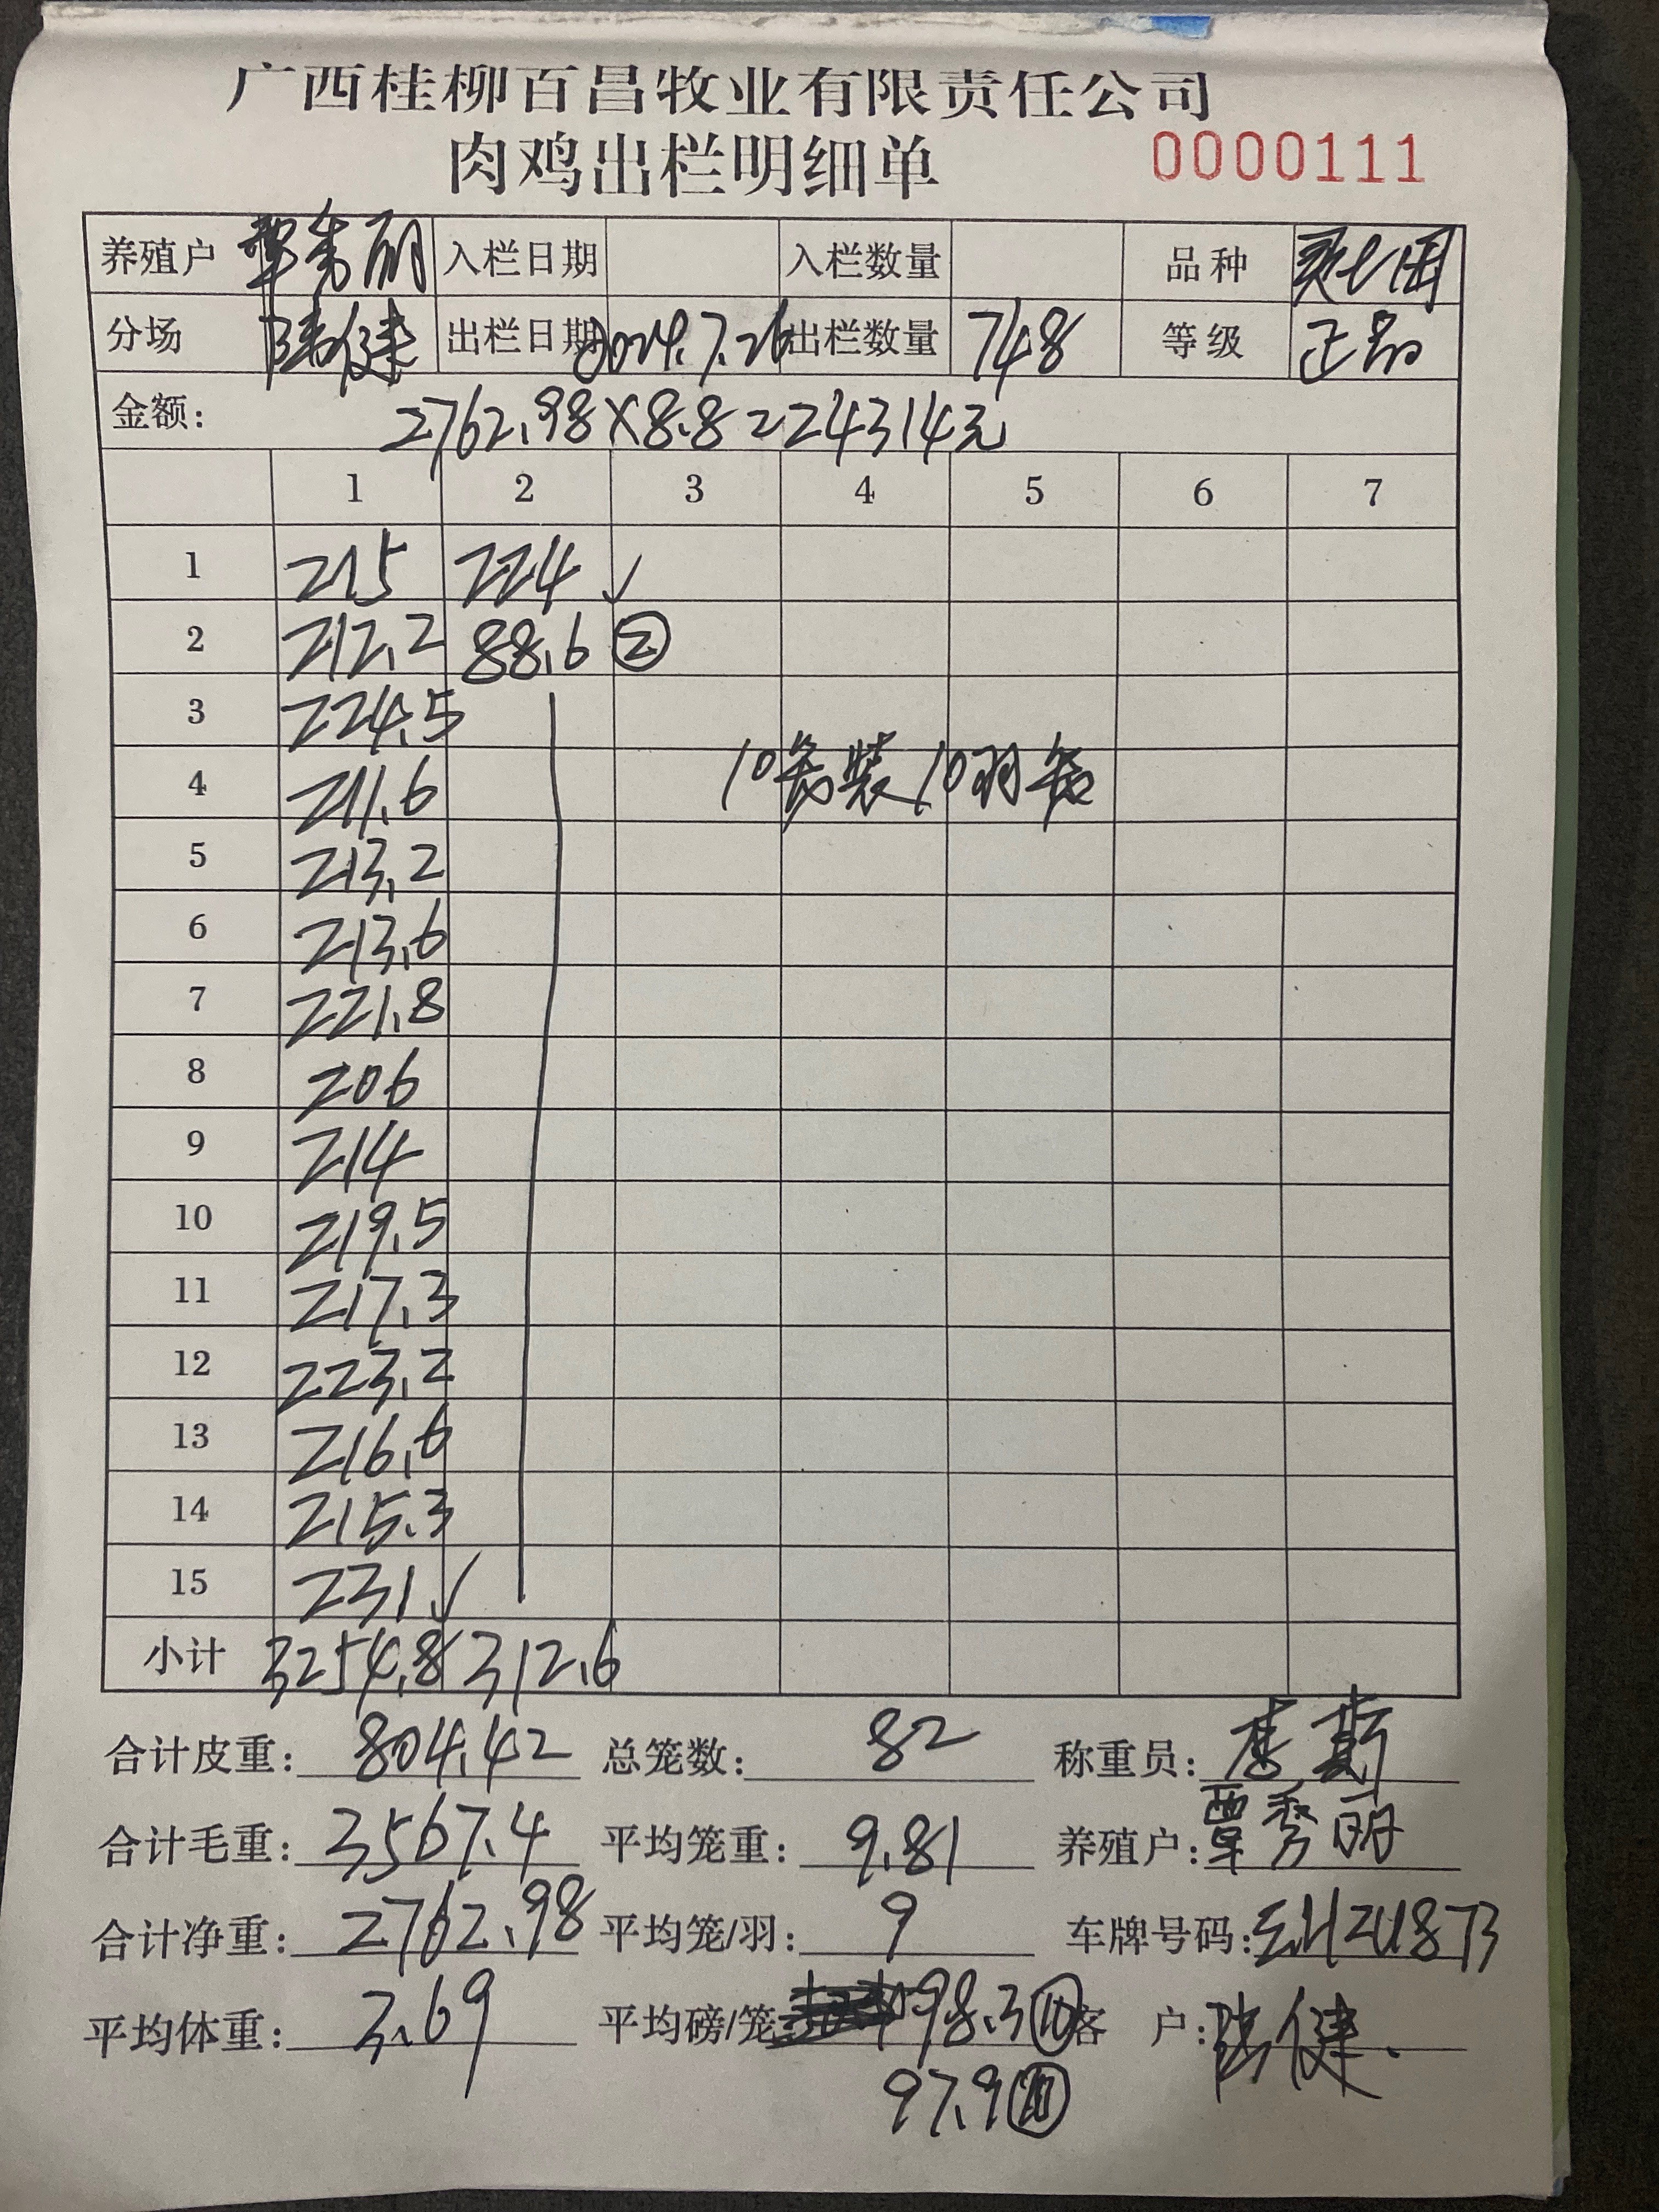 广西桂柳百昌牧业有限责任公司
肉鸡出栏明细单 0000111
养殖户 覃秀丽 入栏日期 入栏数量 品种
分场 陆健 出栏日期 2024.7.26 出栏数量 748 等级 正品
金额: 2762.98×8.8=24314元
1 2 3 4 5 6 7
1 215 224 ✓
2 212.2 88.6 ②
3 224.5
4 211.6 10笼装10羽笼
5 213.2
6 213.6
7 221.8
8 206
9 214
10 219.5
11 217.3
12 223.2
13 216.6
14 215.3
15 231 ✓
小计 3254.8 312.6
合计皮重: 804.42 总笼数: 82 称重员:
合计毛重: 3567.4 平均笼重: 9.81 养殖户: 覃秀丽
合计净重: 2762.98 平均笼/羽: 9 车牌号码:
平均体重: 3.69 平均磅/笼 98.3 ⑩ 客 户: 陆健
97.9 ⑳